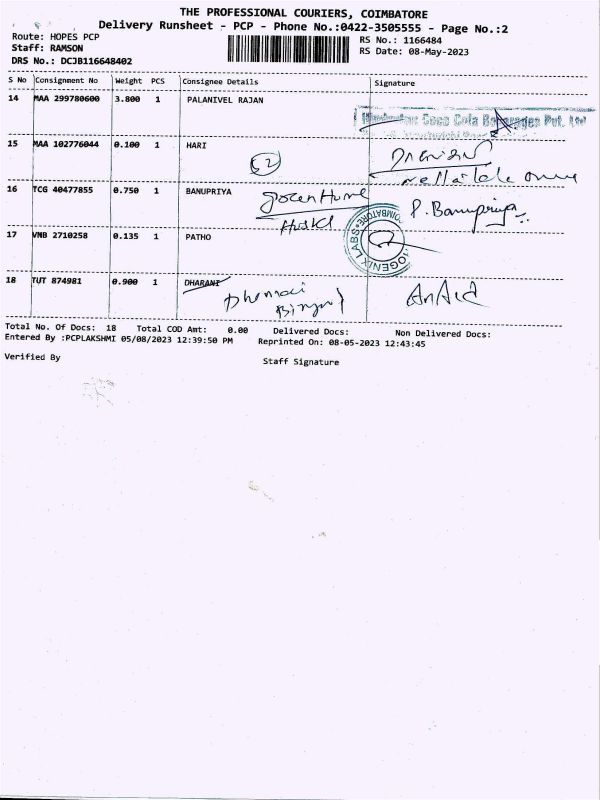 THE PROFESSIONAL COURIERS, COIMBATORE
Delivery Runsheet - PCP - Phone No.:0422-3505555 - Page No.:2
Route: HOPES PCP
Staff: RAMSON
DRS No.: DCJB116648402
RS No.: 1166484
RS Date: 08-May-2023
S No Consignment No Weight PCS Consignee Details Signature
14 MAA 299780600 3.800 1 PALANIVEL RAJAN
Hindustan Coca Cola Beverages Pvt. Ltd
15 MAA 102776044 0.100 1 HARI
52
16 TCG 40477855 0.750 1 BANUPRIYA
Green Home
P. Banupriya
17 VNB 2710258 0.135 1 PATHO
COIMBATORE
LABS
18 TUT 874981 0.900 1 DHARANI
Total No. Of Docs: 18 Total COD Amt: 0.00 Delivered Docs: Non Delivered Docs:
Entered By :PCPLAKSHMI 05/08/2023 12:39:50 PM Reprinted On: 08-05-2023 12:43:45
Verified By Staff Signature